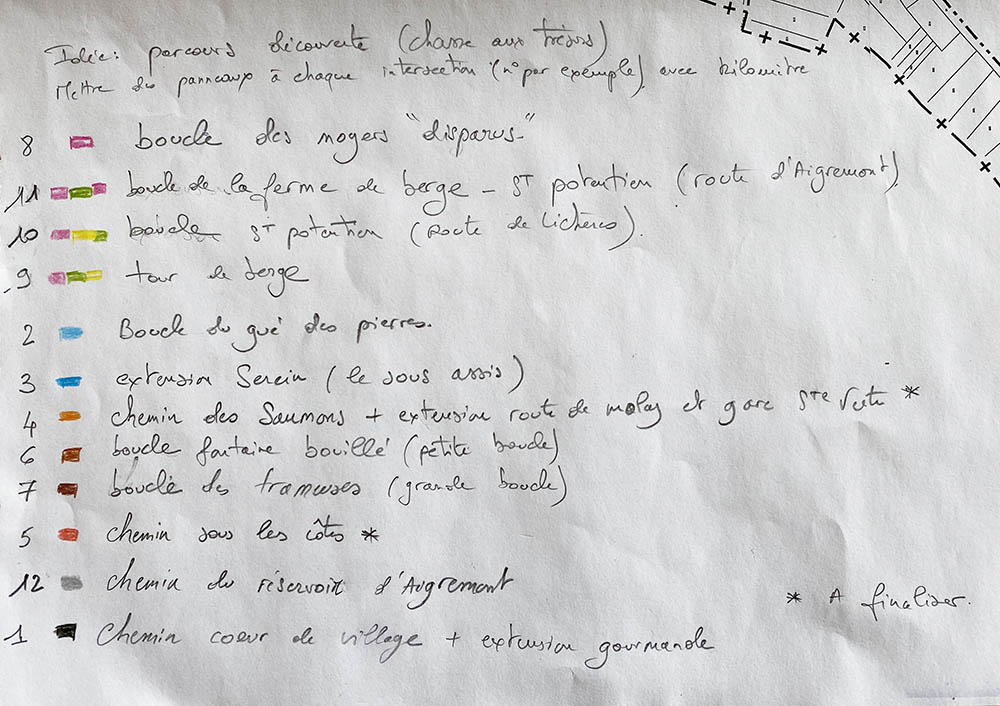 Idée : parcours découverte (chasse aux trésors)
Mettre des panneaux à chaque intersection (n° par exemple) avec kilomètre
8 boucle des noyers "disparus"
11 boucle de la ferme de berge - ST potentien (route d'Aigremont)
10 boucle ST potentien (Route de Lichères).
9 tour de berge
2 Boucle du gué des pierres.
3 extension Serein (le sous assis)
4 chemin des Saumons + extension route de molay et gare Ste Vertu *
6 boucle fontaine bouillé (petite boucle)
7 boucle des trameuses (grande boucle)
5 chemin sous les côtes *
12 chemin du réservoir d'Aigremont
* A finaliser.
1 Chemin coeur de village + extension gourmande